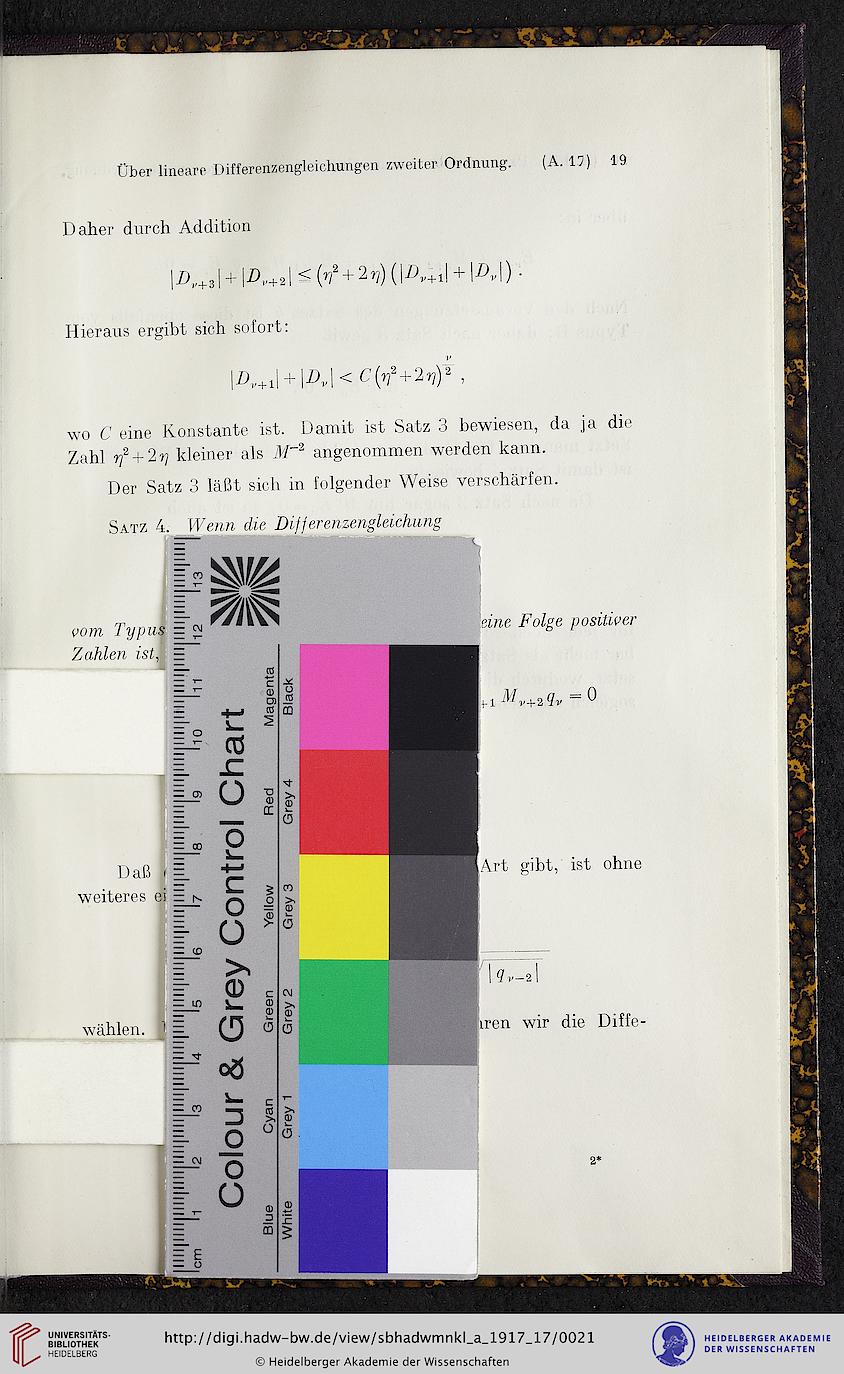 Über lineare Differenzengleichungen zweiter Ordnung. (A. 17) 19
Daher durch Addition
|D_{ν+3}| + |D_{ν+2}| ≤ (η² + 2η) (|D_{ν+1}| + |D_ν|) .
Hieraus ergibt sich sofort:
|D_{ν+1}| + |D_ν| < C (η² + 2η)^{ν/2} ,
wo C eine Konstante ist. Damit ist Satz 3 bewiesen, da ja die
Zahl η² + 2η kleiner als M⁻² angenommen werden kann.
Der Satz 3 läßt sich in folgender Weise verschärfen.
Satz 4. Wenn die Differenzengleichung
vom Typus eine Folge positiver
Zahlen ist,
+1 M_{ν+2} q_ν = 0
Daß Art gibt, ist ohne
weiteres
|q_{ν−2}|
wählen. wir die Diffe-
2*
Colour & Grey Control Chart
Magenta Red Yellow Green Cyan Blue
Black Grey 4 Grey 3 Grey 2 Grey 1 White
13
12
11
10
9
8
7
6
5
4
3
2
1
cm
UNIVERSITÄTS-
BIBLIOTHEK
HEIDELBERG
http://digi.hadw-bw.de/view/sbhadwmnkl_a_1917_17/0021
© Heidelberger Akademie der Wissenschaften
HEIDELBERGER AKADEMIE
DER WISSENSCHAFTEN